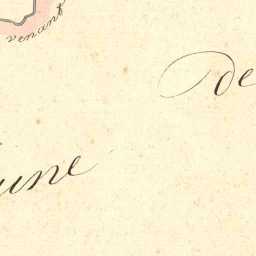 venant
de
une